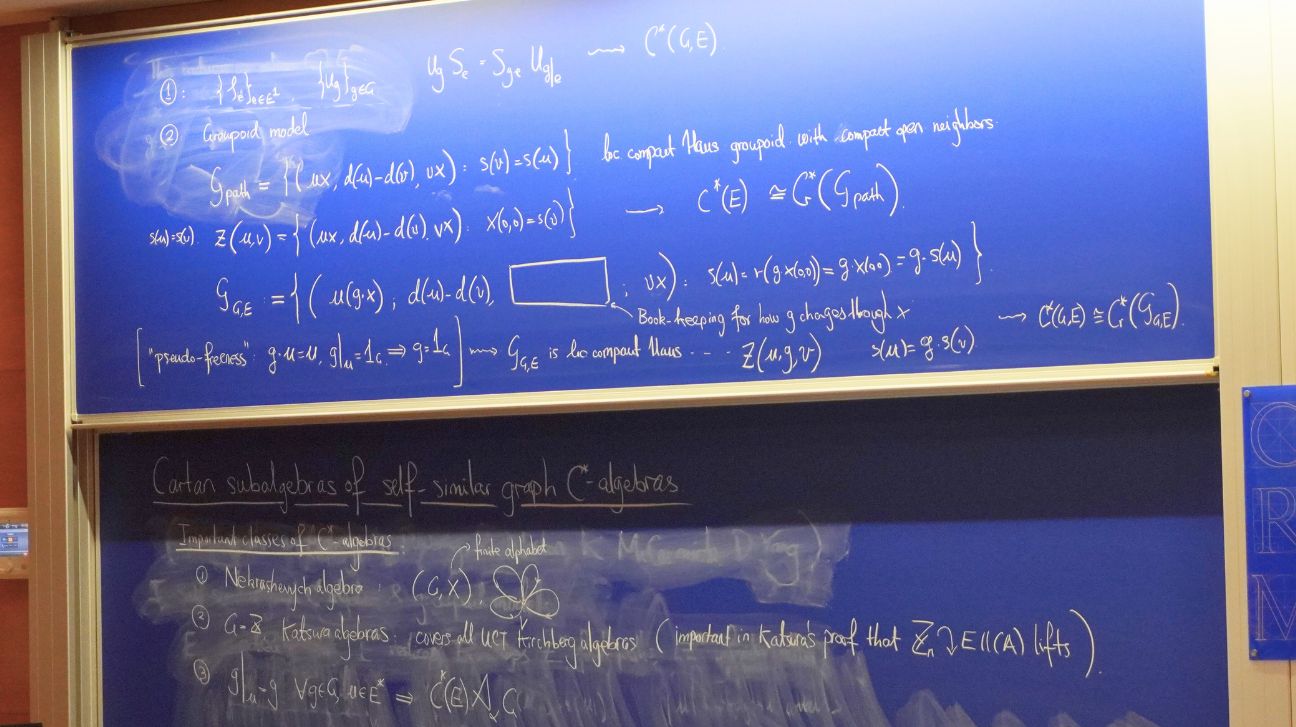 ①: {S_e}_{e∈E¹}, {U_g}_{g∈G} U_g S_e = S_{ge} U_{g|_e} ⇝ C*(G,E)
② Groupoid model
G_path = {(μx, d(μ)-d(ν), νx) : s(ν)=s(μ)} loc compact Haus groupoid with compact open neighbors
s(μ)=s(ν). Z(μ,ν) = {(μx, d(μ)-d(ν), νx) : x(0,0)=s(ν)} → C*(E) ≅ C_r*(G_path).
G_{G,E} := {(μ(g·x); d(μ)-d(ν), ; νx) : s(μ)=r(g·x(0,0))=g·x(0,0)=g·s(μ)}.
Book-keeping for how g changes though x ⇝ C*(G,E) ≅ C_r*(G_{G,E}).
["pseudo-freeness": g·μ=μ, g|_μ=1_G ⇒ g=1_G] ⇝ G_{G,E} is loc compact Haus - - - Z(μ,g,ν) s(μ)=g·s(ν)
Cartan subalgebras of self-similar graph C*-algebras
Important classes of C*-algebras
finite alphabet
① Nekrashevych algebra : (G,X),
② G=ℤ Katsura algebras: covers all UCT Kirchberg algebras (important in Katsura's proof that ℤ_n ↷ Ell(A) lifts).
③ g|_μ=g ∀g∈G, μ∈E* ⇒ C*(E)⋊G
C
R
M